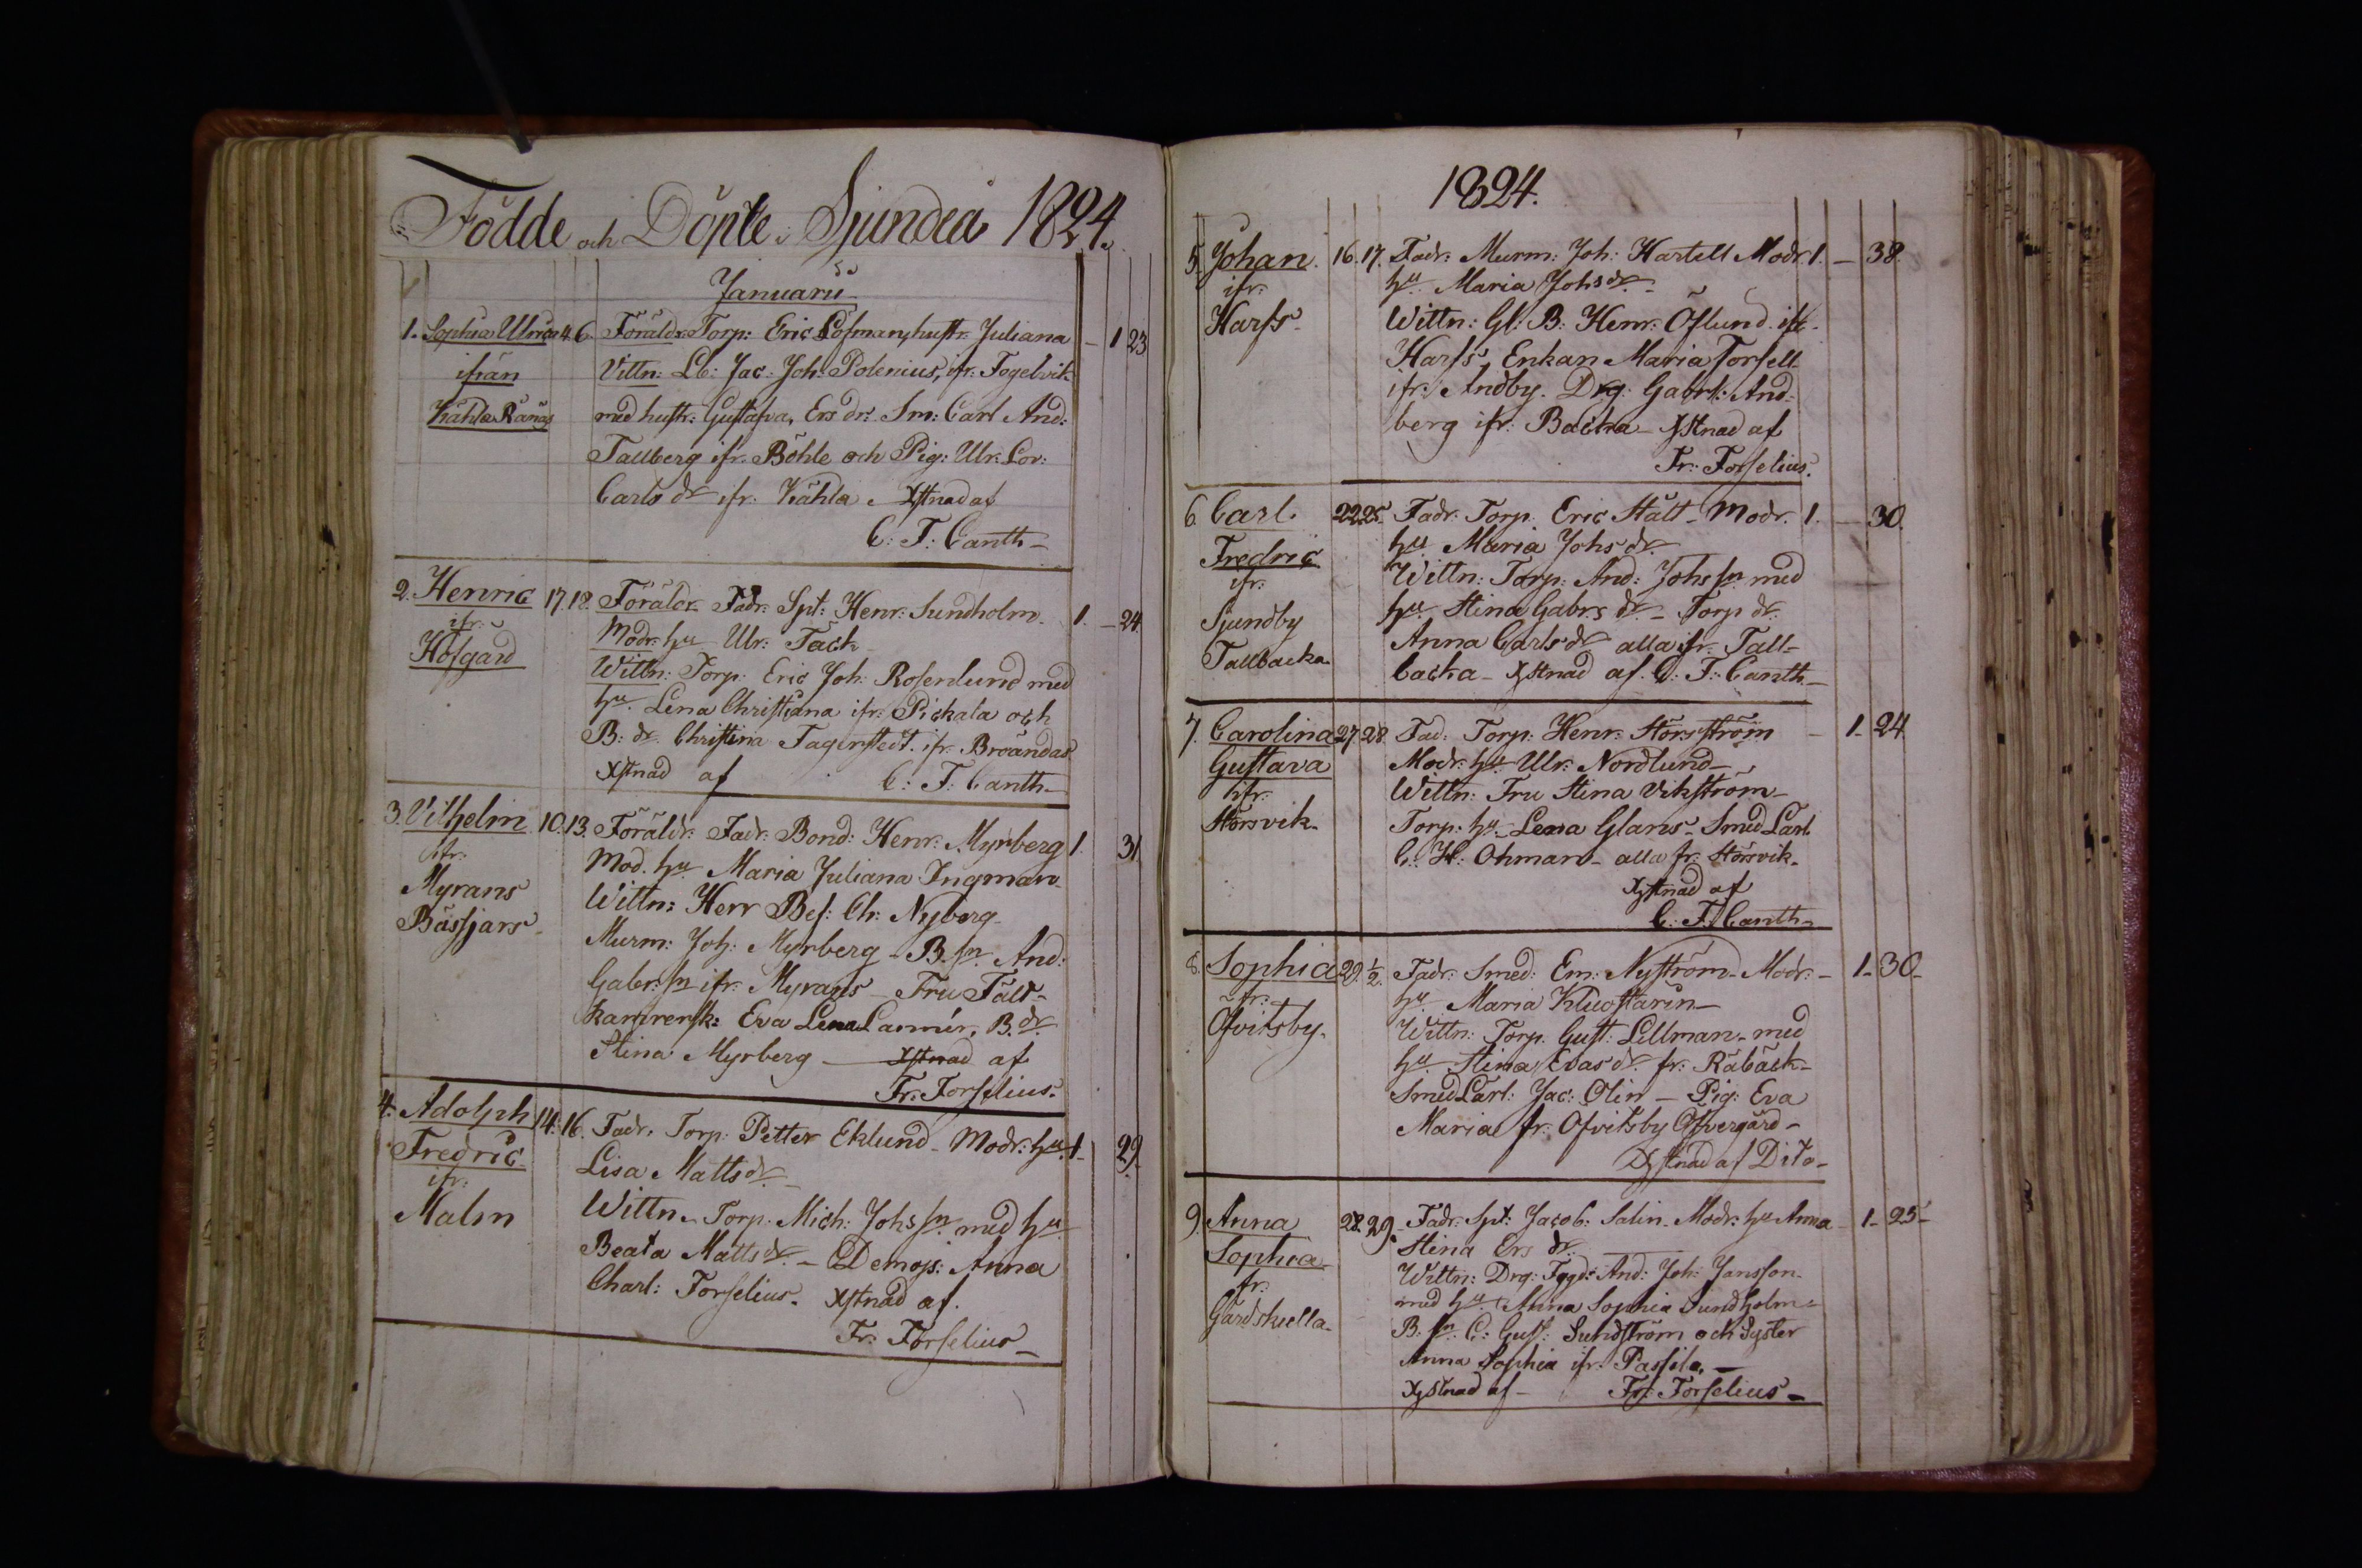 Födde och Döpte i Sjundeå 1824.
Januarii
1. Sophia Ulrica 4. 6. Föräldr. Torp: Eric Löfman, hustr. Juliana – 1 23
ifrån Vittn: Lb: Jac: Joh: Polenius, ifr. Fogelvik
Kähla Rånäs med hustr: Gustafva, Ers dr. Sm: Carl And:
Tallberg ifr. Böhle och Pig: Ulr: Lov:
Carls dr ifr. Kähla Xstnad af
C: F: Canth –
2. Henric 17. 18. Föräldr. Fadr. Spt: Henr: Sundholm. 1. – 24.
ifr. Modr. hu Ulr: Tack
Hofgård Wittn: Torp: Eric Joh: Rosenlund med
hu. Lena Christiana ifr. Pickala och
B: dr. Christina Fagerstedt. ifr. Broändas
Xstnad af C: F: Canth –
3. Vilhelm 10. 13. Föräldr. Fadr. Bond: Henr: Myrberg 1. 31.
ifr. Mod. hu Maria Juliana Ingman
Myrans Wittn: Herr Bef: Ch: Nyberg –
Båssjars – Murm: Joh: Myrberg – B. sn. And:
Gabr. sn ifr. Myrans – Fru Fält-
kamrersk: Eva Lena B. dr
Stina Myrberg – Xstnad af
Fr. Forselius.
4. Adolph 14. 16. Fadr. Torp: Petter Eklund – Modr: hu. 1 – 29.
Fredric Lisa Matts dr. –
ifr. Wittn. Torp. Mich: Johs sn. med hu
Malm Beata Matts dr. – Demoj: Anna
Charl: Forselius. Xstnad af.
Fr. Forselius –
1824.
5. Johan. 16. 17. Fadr. Murm: Joh: Hartell Modr 1. – 38.
ifr. hu. Maria Johs dr. –
Harfs – Wittn: Gl: B: Henr: Öflund. ifr.
Harfs, Enkan Maria Forsell
ifr. Andby. Drg: Gabrl: And-
berg ifr. Backa – Xstnad af
Fr. Forselius.
6. Carl 22. 25. Fadr. Torp. Eric Stått – Modr. 1. – 30.
Fredric hu. Maria Johs dr.
ifr. Wittn: Torp: And: Johs sn med
Sjundby hu. Stina Gabrs dr. – Torp dr.
Tallbacka Anna Carls dr alla ifr. Tall-
backa – Xstnad af. C: F: Canth –
7. Carolina 27. 28. Fad: Torp: Henr: Storsström – 1 – 24
Gustava Modr. hu. Ulr: Nordlund –
ifr. Wittn: Fru Stina Vikström –
Störsvik – Torp: hu. Lena Glans – Smed Lärl.
C: H: Ohman – alla fr. Störsvik.
Xstnad af
C: F: Canth –
8. Sophia 29. ½. Fadr. Smed: Em: Nyström – Modr: – 1 – 30 –
fr. hu. Maria –
Ofvitsby. Wittn: Torp. Gust: Lillman – med
hu. Stina Evas dr. fr. Råbäck –
Smed Lärl: Jac: Olin – Pig: Eva
Maria fr. Ofvitsby Öfvergård –
Xstnad af Dito –
9. Anna 28. 29. Fadr. Spt: Jacob: Salin – Modr. hu Anna – 1 – 25 –
Sophia Stina Ers dr.
fr. Wittn: Drg: And: Joh: Jansson –
Gårdskulla – med hu. Anna Sophia Sundholm –
B. sn. C: Gust: Sundström och Syster
Anna Sophia ifr. Passila, –
Xstnad af – Fr: Forselius –